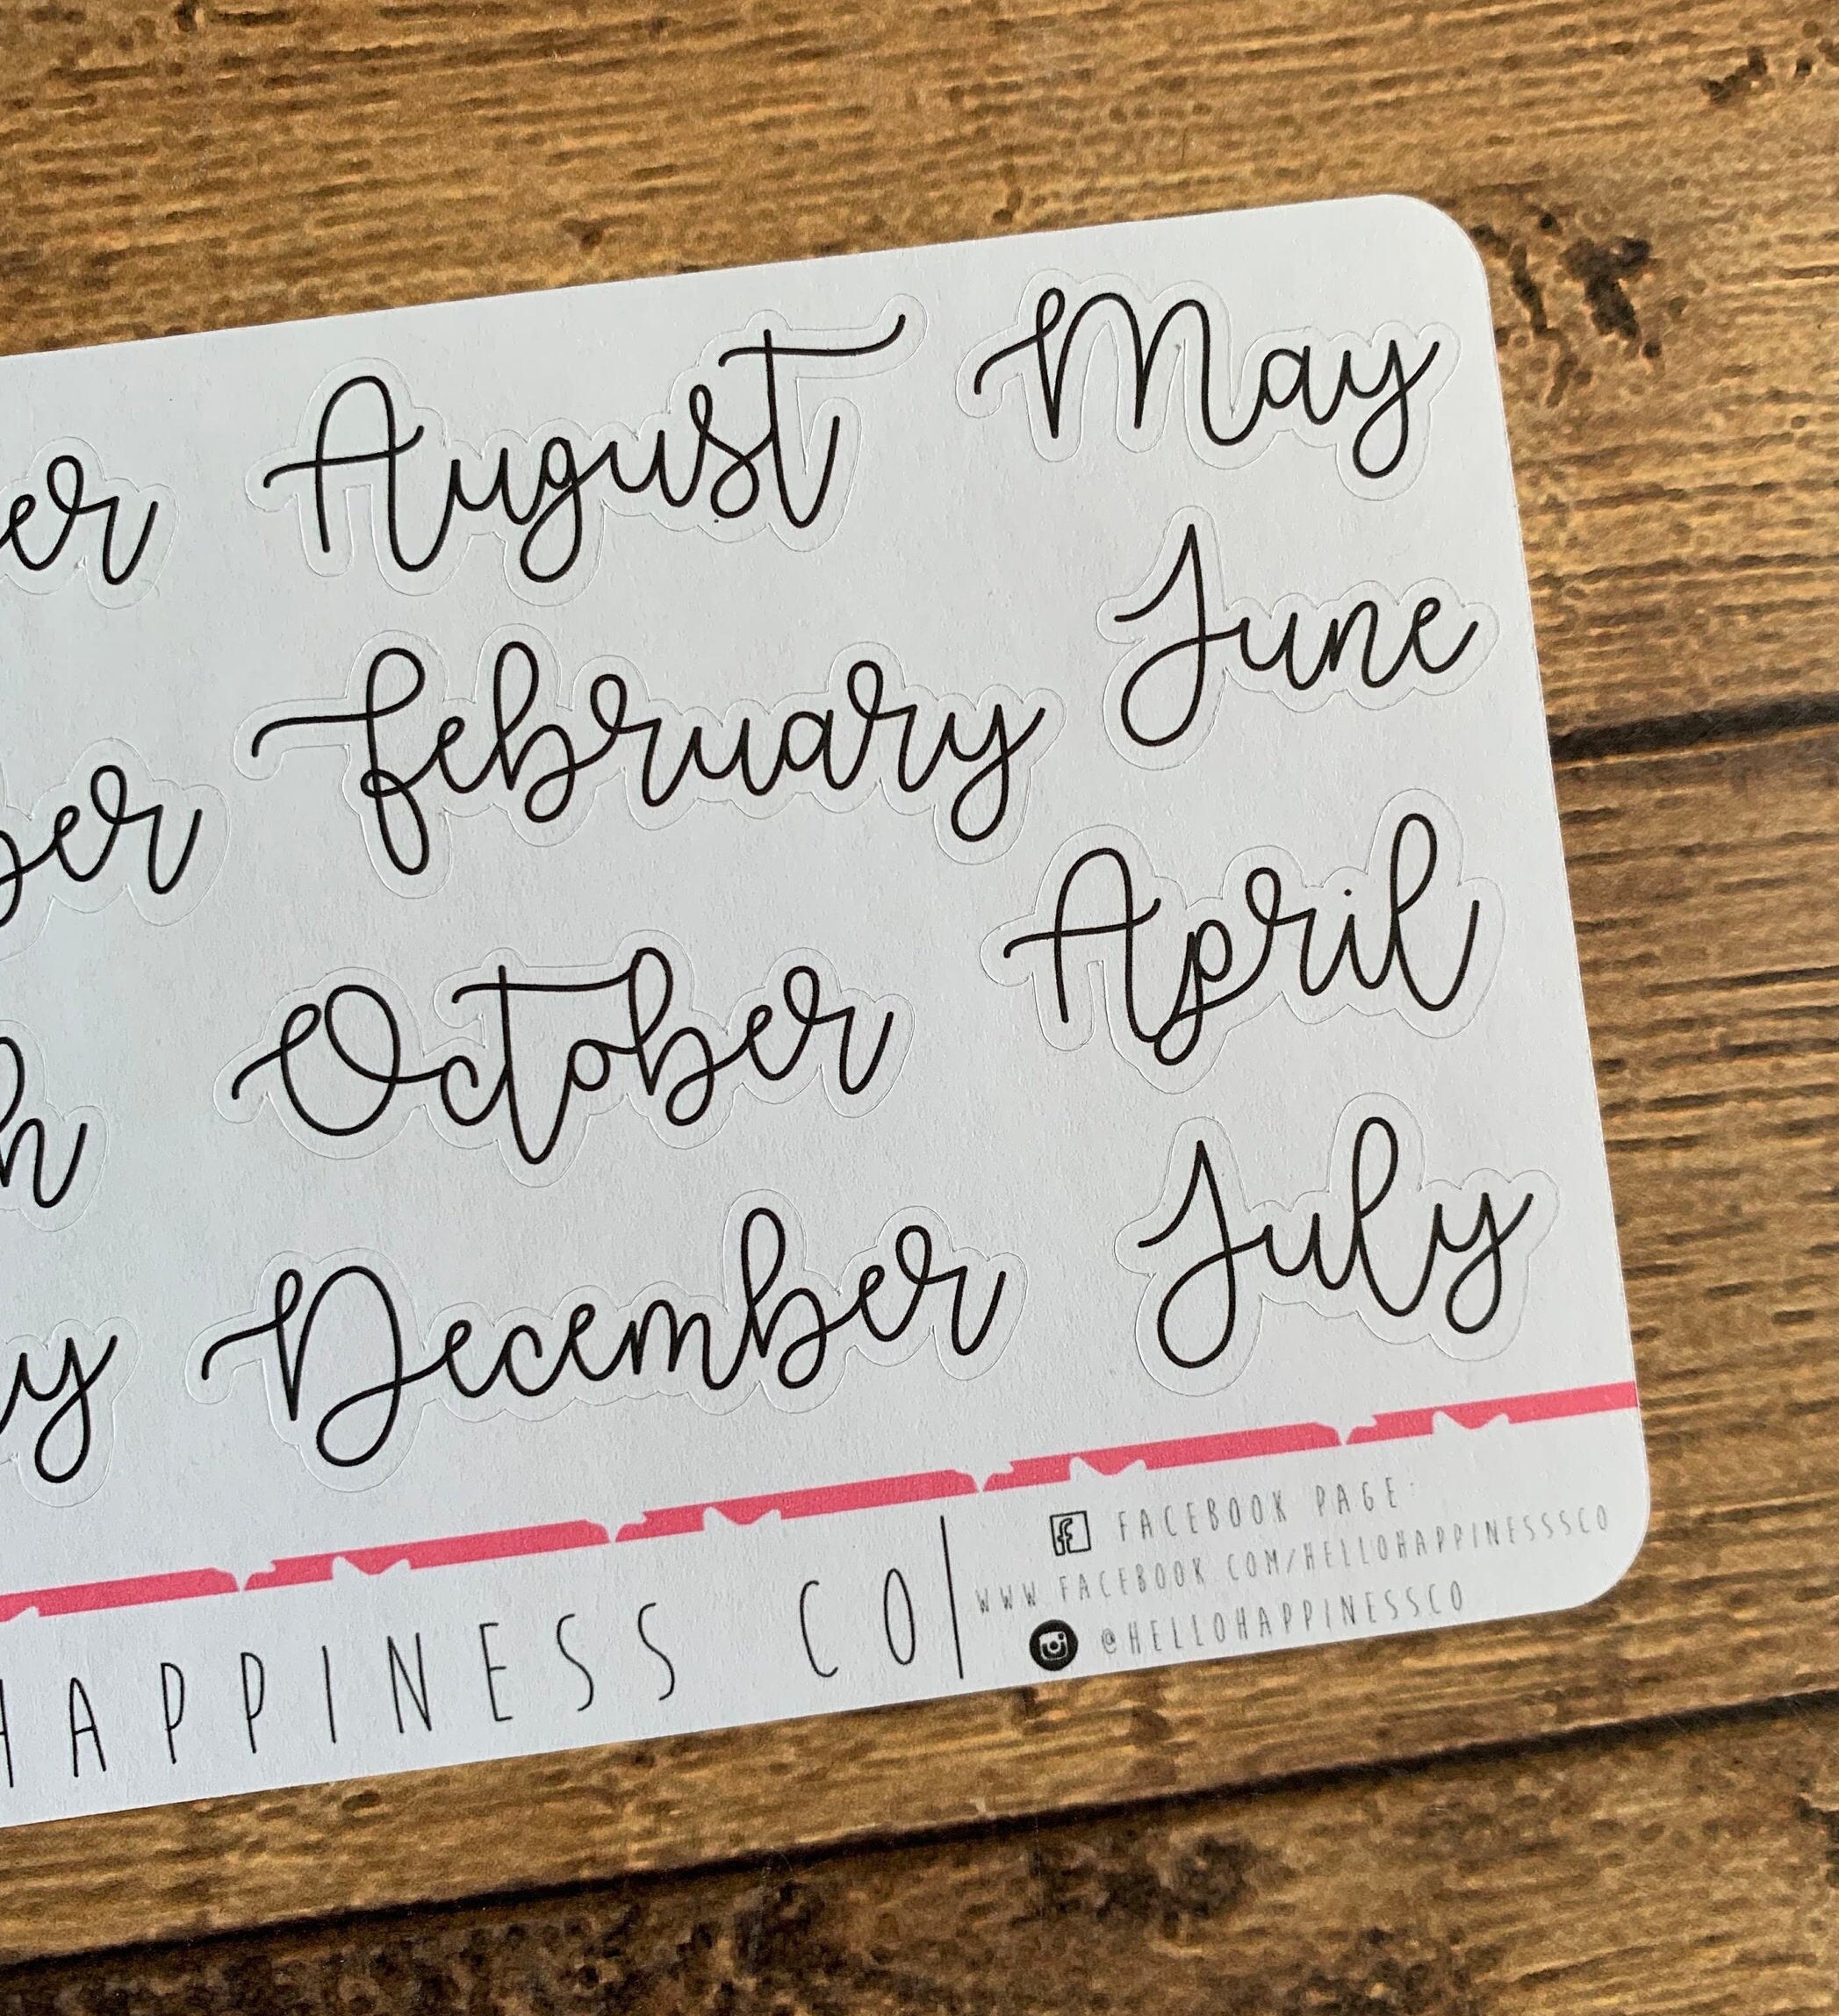 er August May
ber February June
h October April
y December July
HAPPINESS CO
FACEBOOK PAGE:
WWW.FACEBOOK.COM/HELLOHAPPINESSSCO
@HELLOHAPPINESSCO